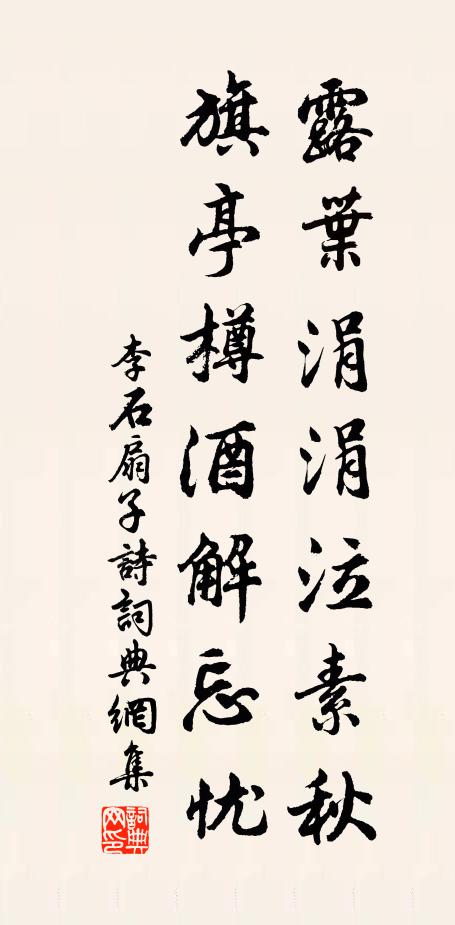 露葉涓涓泣素秋
旗亭樽酒解忘忧
李石扇子詩詞典網集
詞典
网印